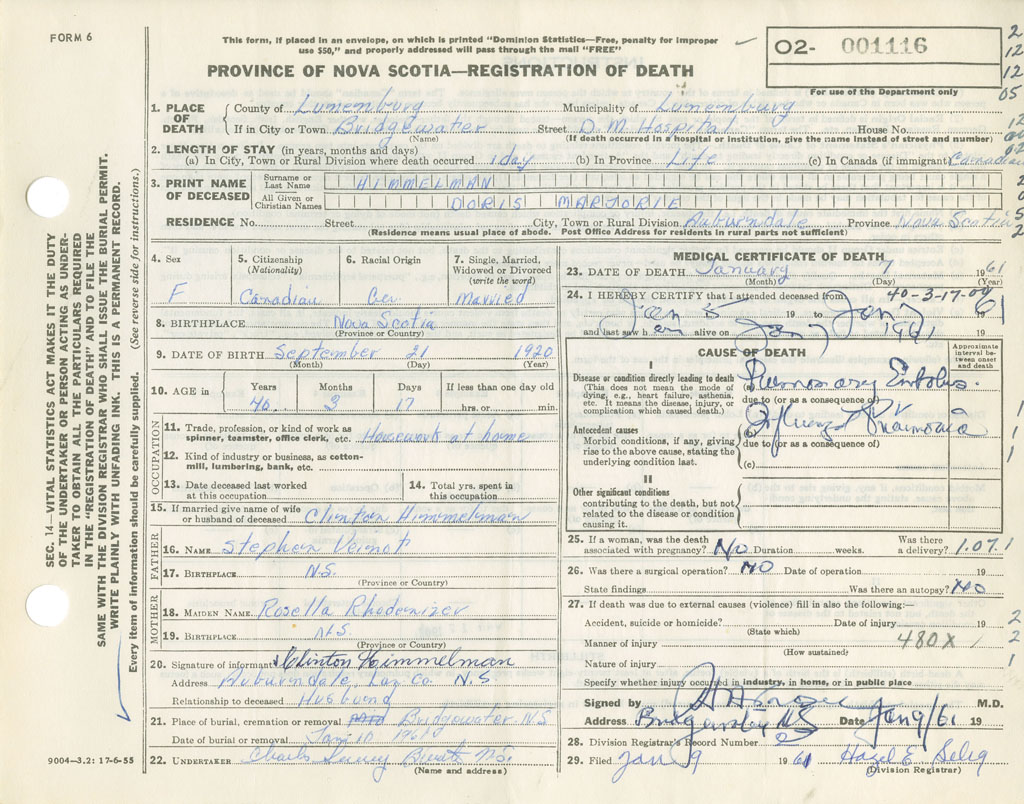 FORM 6
This form, if placed in an envelope, on which is printed "Dominion Statistics—Free, penalty for improper
use $50," and properly addressed will pass through the mail "FREE"
02- 001116
For use of the Department only
PROVINCE OF NOVA SCOTIA—REGISTRATION OF DEATH
SEC. 14—VITAL STATISTICS ACT MAKES IT THE DUTY
OF THE UNDERTAKER OR PERSON ACTING AS UNDER-
TAKER TO OBTAIN ALL THE PARTICULARS REQUIRED
IN THE "REGISTRATION OF DEATH" AND TO FILE THE
SAME WITH THE DIVISION REGISTRAR WHO SHALL ISSUE THE BURIAL PERMIT.
WRITE PLAINLY WITH UNFADING INK. THIS IS A PERMANENT RECORD.
Every item of information should be carefully supplied. (See reverse side for instructions.)
1. PLACE OF DEATH County of Lunenburg Municipality of Lunenburg
If in City or Town Bridgewater Street D. M Hospital House No.
(Name) (If death occurred in a hospital or institution, give the name instead of street and number)
2. LENGTH OF STAY (in years, months and days)
(a) In City, Town or Rural Division where death occurred 1 day (b) In Province Life (c) In Canada (if immigrant) Canadian
3. PRINT NAME OF DECEASED Surname or Last Name HIMMELMAN
All Given or Christian Names DORIS MARJORIE
RESIDENCE No. Street City, Town or Rural Division Auburndale Province Nova Scotia
(Residence means usual place of abode. Post Office Address for residents in rural parts not sufficient)
4. Sex F
5. Citizenship (Nationality) Canadian
6. Racial Origin Ger.
7. Single, Married, Widowed or Divorced (write the word) Married
8. BIRTHPLACE Nova Scotia
(Province or Country)
9. DATE OF BIRTH September 21 1920
(Month) (Day) (Year)
10. AGE in Years 40 Months 3 Days 17 If less than one day old hrs. or min.
OCCUPATION
11. Trade, profession, or kind of work as
spinner, teamster, office clerk, etc. Housework at home
12. Kind of industry or business, as cotton-
mill, lumbering, bank, etc.
13. Date deceased last worked at this occupation
14. Total yrs. spent in this occupation
15. If married give name of wife
or husband of deceased Clinton Himmelman
FATHER
16. NAME Stephen Veinot
17. BIRTHPLACE N.S.
(Province or Country)
MOTHER
18. MAIDEN NAME Rosella Rhodenizer
19. BIRTHPLACE N.S
(Province or Country)
20. Signature of informant Clinton Himmelman
Address Auburndale, Lun Co. N.S.
Relationship to deceased Husband
21. Place of burial, cremation or removal Bridgewater N.S
Date of burial or removal Jan 10 1961
22. UNDERTAKER Charles
(Name and address)
9004—3.2: 17-6-55
MEDICAL CERTIFICATE OF DEATH
23. DATE OF DEATH January 7 1961
(Month) (Day) (Year)
24. I HEREBY CERTIFY that I attended deceased from 40-3-17-04
Jan 5 19 to Jan 7 61
and last saw her alive on Jan 7 1961 19
CAUSE OF DEATH
Approximate interval between onset and death
I
Disease or condition directly leading to death (a) Pulmonary Embolus
(This does not mean the mode of
dying, e.g., heart failure, asthenia,
etc. It means the disease, injury, or
complication which caused death.)
due to (or as a consequence of)
Antecedent causes (b) Influenzal Pneumonia
Morbid conditions, if any, giving
rise to the above cause, stating the
underlying condition last.
due to (or as a consequence of)
(c)
II
Other significant conditions
contributing to the death, but not
related to the disease or condition
causing it.
25. If a woman, was the death
associated with pregnancy? No Duration weeks. Was there a delivery? 1.07.1
26. Was there a surgical operation? NO Date of operation 19
State findings Was there an autopsy? NO
27. If death was due to external causes (violence) fill in also the following:—
Accident, suicide or homicide? Date of injury 19
(State which)
Manner of injury 480X
(How sustained)
Nature of injury
Specify whether injury occurred in industry, in home, or in public place
Signed by M.D.
Address Date Jan 9/61 19
28. Division Registrar's Record Number 2
29. Filed Jan 9 1961 Hazel E Selig
(Division Registrar)